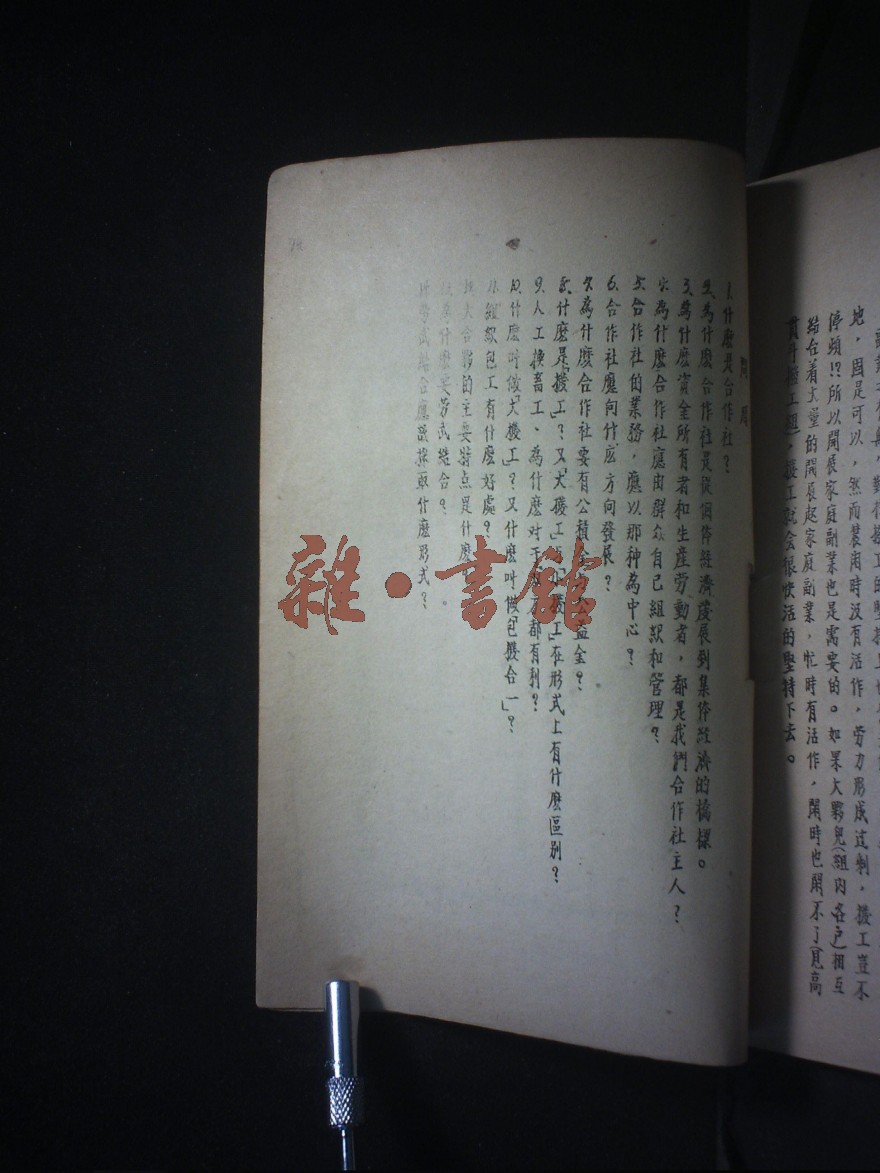 地，固是可以，然而農閑時没有活作，劳力形成过剩，撥工豈不
停頓！？所以開展家庭副業也是需要的。如果大夥兒（組内各户）相互
結合着大量的開展起家庭副業，忙時有活作，閑時也閑不了（見高
貫升撥工組），撥工就会很快活的堅持下去。
問題
1、什麽是合作社？
2、為什麽合作社是從個体經濟發展到集体經濟的橋樑。
3、為什麽資金所有者和生産劳動者，都是我們合作社主人？
4、為什麽合作社應由群众自己組織和管理？
5、合作社的業務，應以那种為中心？
6、合作社應向什麽方向發展？
7、為什麽合作社要有公積金 公益金？
8、什麽是「撥工」？又「大撥工」与「小撥工」在形式上有什麽區别？
9、人工換畜工、為什麽对 都有利？
10、什麽叫做「大撥工」？又什麽叫做「包撥合一」？
11、組織包工有什麽好處？
12、大合夥的主要特点是什麽？
為什麽要劳武結合？
劳武結合應該採取什麽形式？
雜·書館